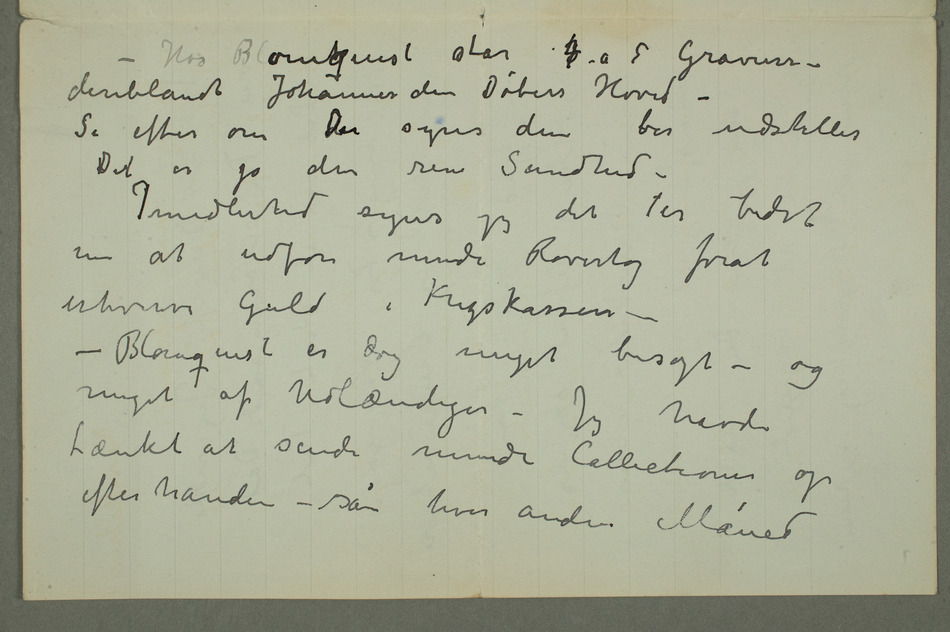 – Hos Blomquist står 4 a 5 Gravurer –
deriblandt Johannes den Døbers Hoved –
Se efter om De synes den bør udstilles
Det er jo den rene Sandhed –
Imidlertid synes jeg det er bedst
nu at udføre mindre Rovertog forat
erhverve Guld i Krigskassen –
– Blomquist er dog meget besøgt – og
meget af Udlændiger – Jeg havde
tænkt at sende mindre Collectioner op
efterhånden – så hver anden Måned